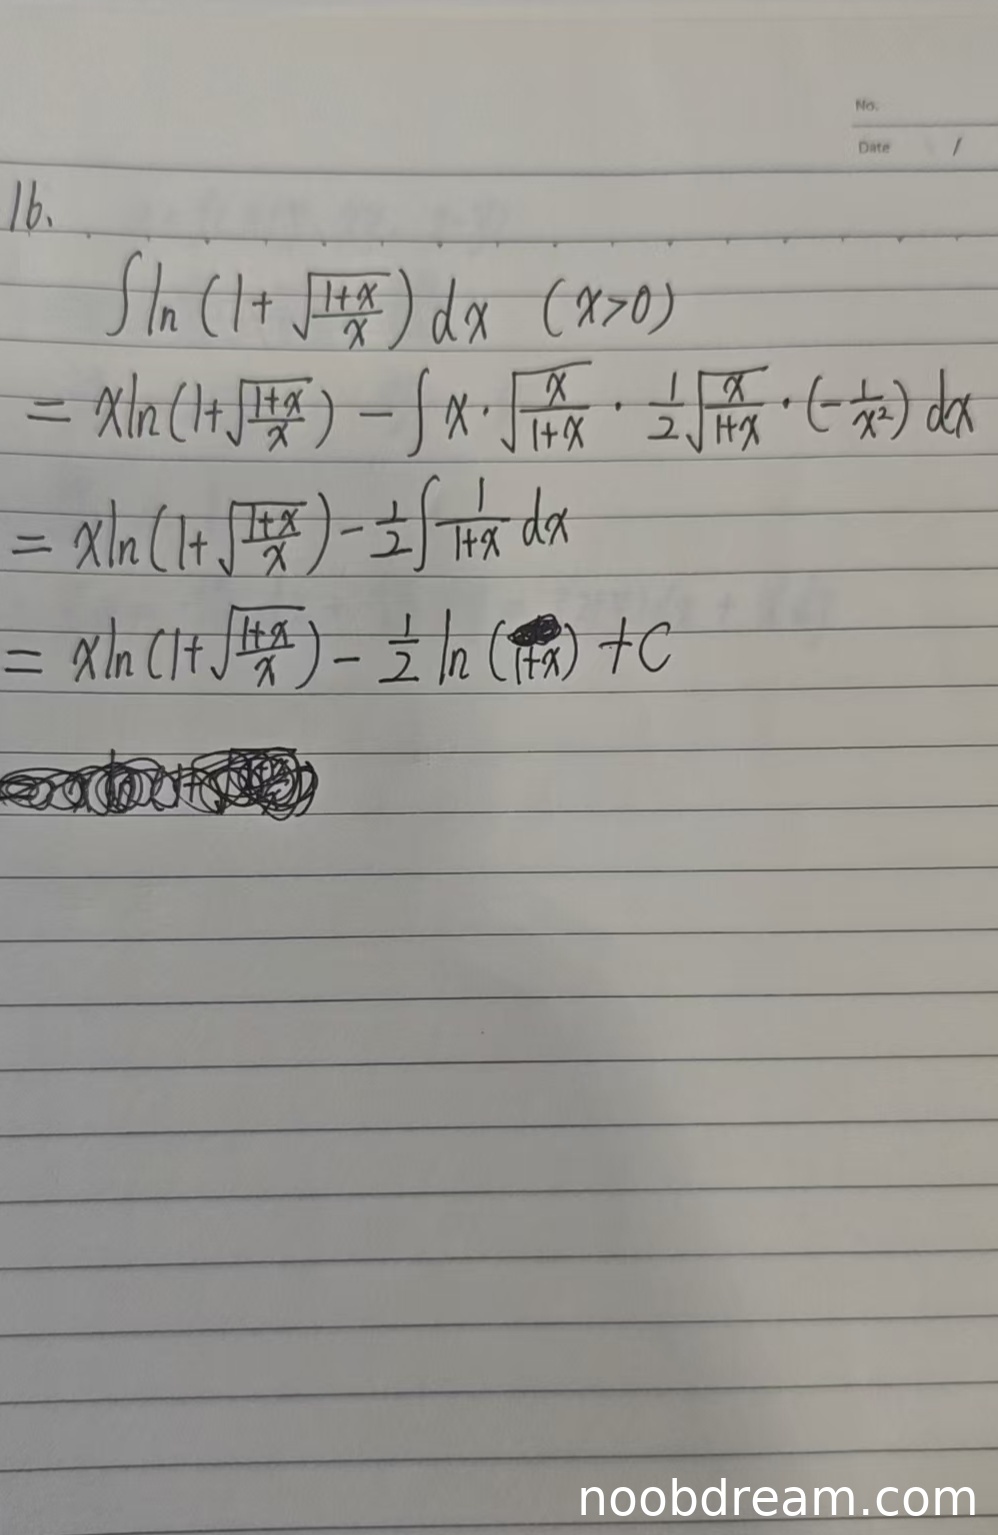 No.
Date /
16.
∫ln(1+√((1+x)/x))dx (x>0)
= xln(1+√((1+x)/x)) - ∫x·√(x/(1+x))·1/2√(x/(1+x))·(-1/x²)dx
= xln(1+√((1+x)/x)) - 1/2∫1/(1+x)dx
= xln(1+√((1+x)/x)) - 1/2 ln(1+x) + C
noobdream.com